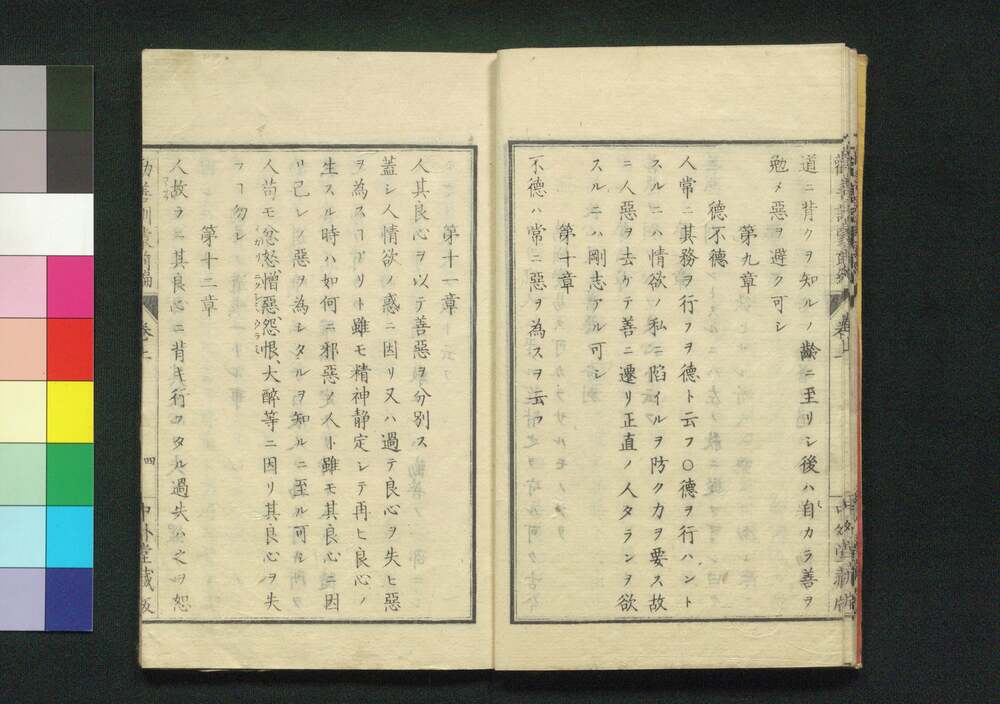 道ニ背クヲ知ルノ齢ニ至リシ後ハ自カラ善ヲ
勉メ惡ヲ避ク可シ
第九章
德不德
人常ニ其務ヲ行フヲ德ト云フ○德ヲ行ハント
スルニハ情欲ノ私ニ陷イルヲ防ク力ヲ要ス故
ニ人惡ヲ去ケテ善ニ遷リ正直ノ人タランヲ欲
スルニハ剛志アル可シ
第十章
不德ハ常ニ惡ヲ為スヲ云フ
第十一章
人其良心ヲ以テ善惡ヲ分別ス
蓋シ人情欲ノ惑ニ因リ又ハ過テ良心ヲ失ヒ惡
ヲ為スヿ有リト雖モ精神静定シテ再ヒ良心ノ
生スル時ハ如何ニ邪惡ノ人ト雖モ其良心ニ因
リ己レノ惡ヲ為シタルヲ知ルニ至ル可シ
人苟モ忿怒、憎惡、怨恨、大醉等ニ因リ其良心ヲ失
フヿ勿レ
第十二章
人故ラニ其良心ニ背キ行フタル過失ハ之ヲ恕
卷上
四
中外堂藏版